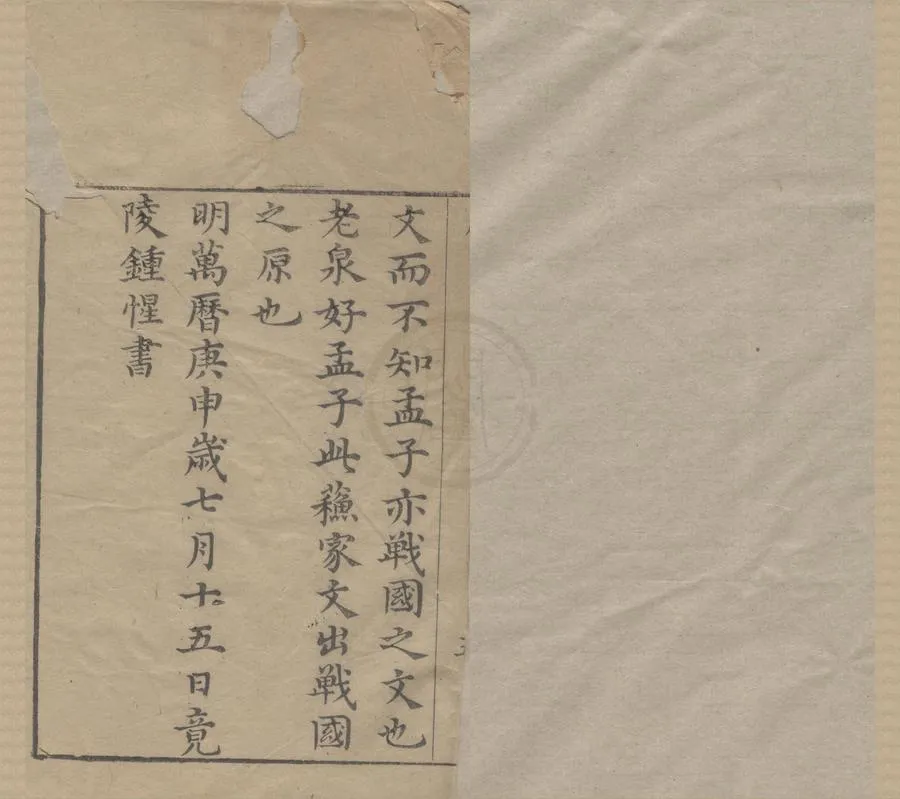 文而不知孟子亦戰國之文也
老泉好孟子此蘓家文出戰國
之原也
明萬曆庚申歲七月十五日竟
陵鍾惺書